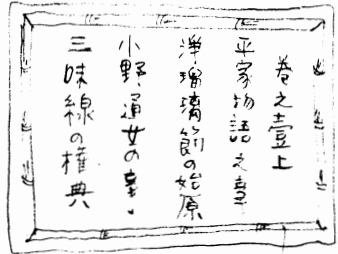 巻之壹上
平家物語之章
浄瑠璃節の始原
小野通女の章
三味線の権典